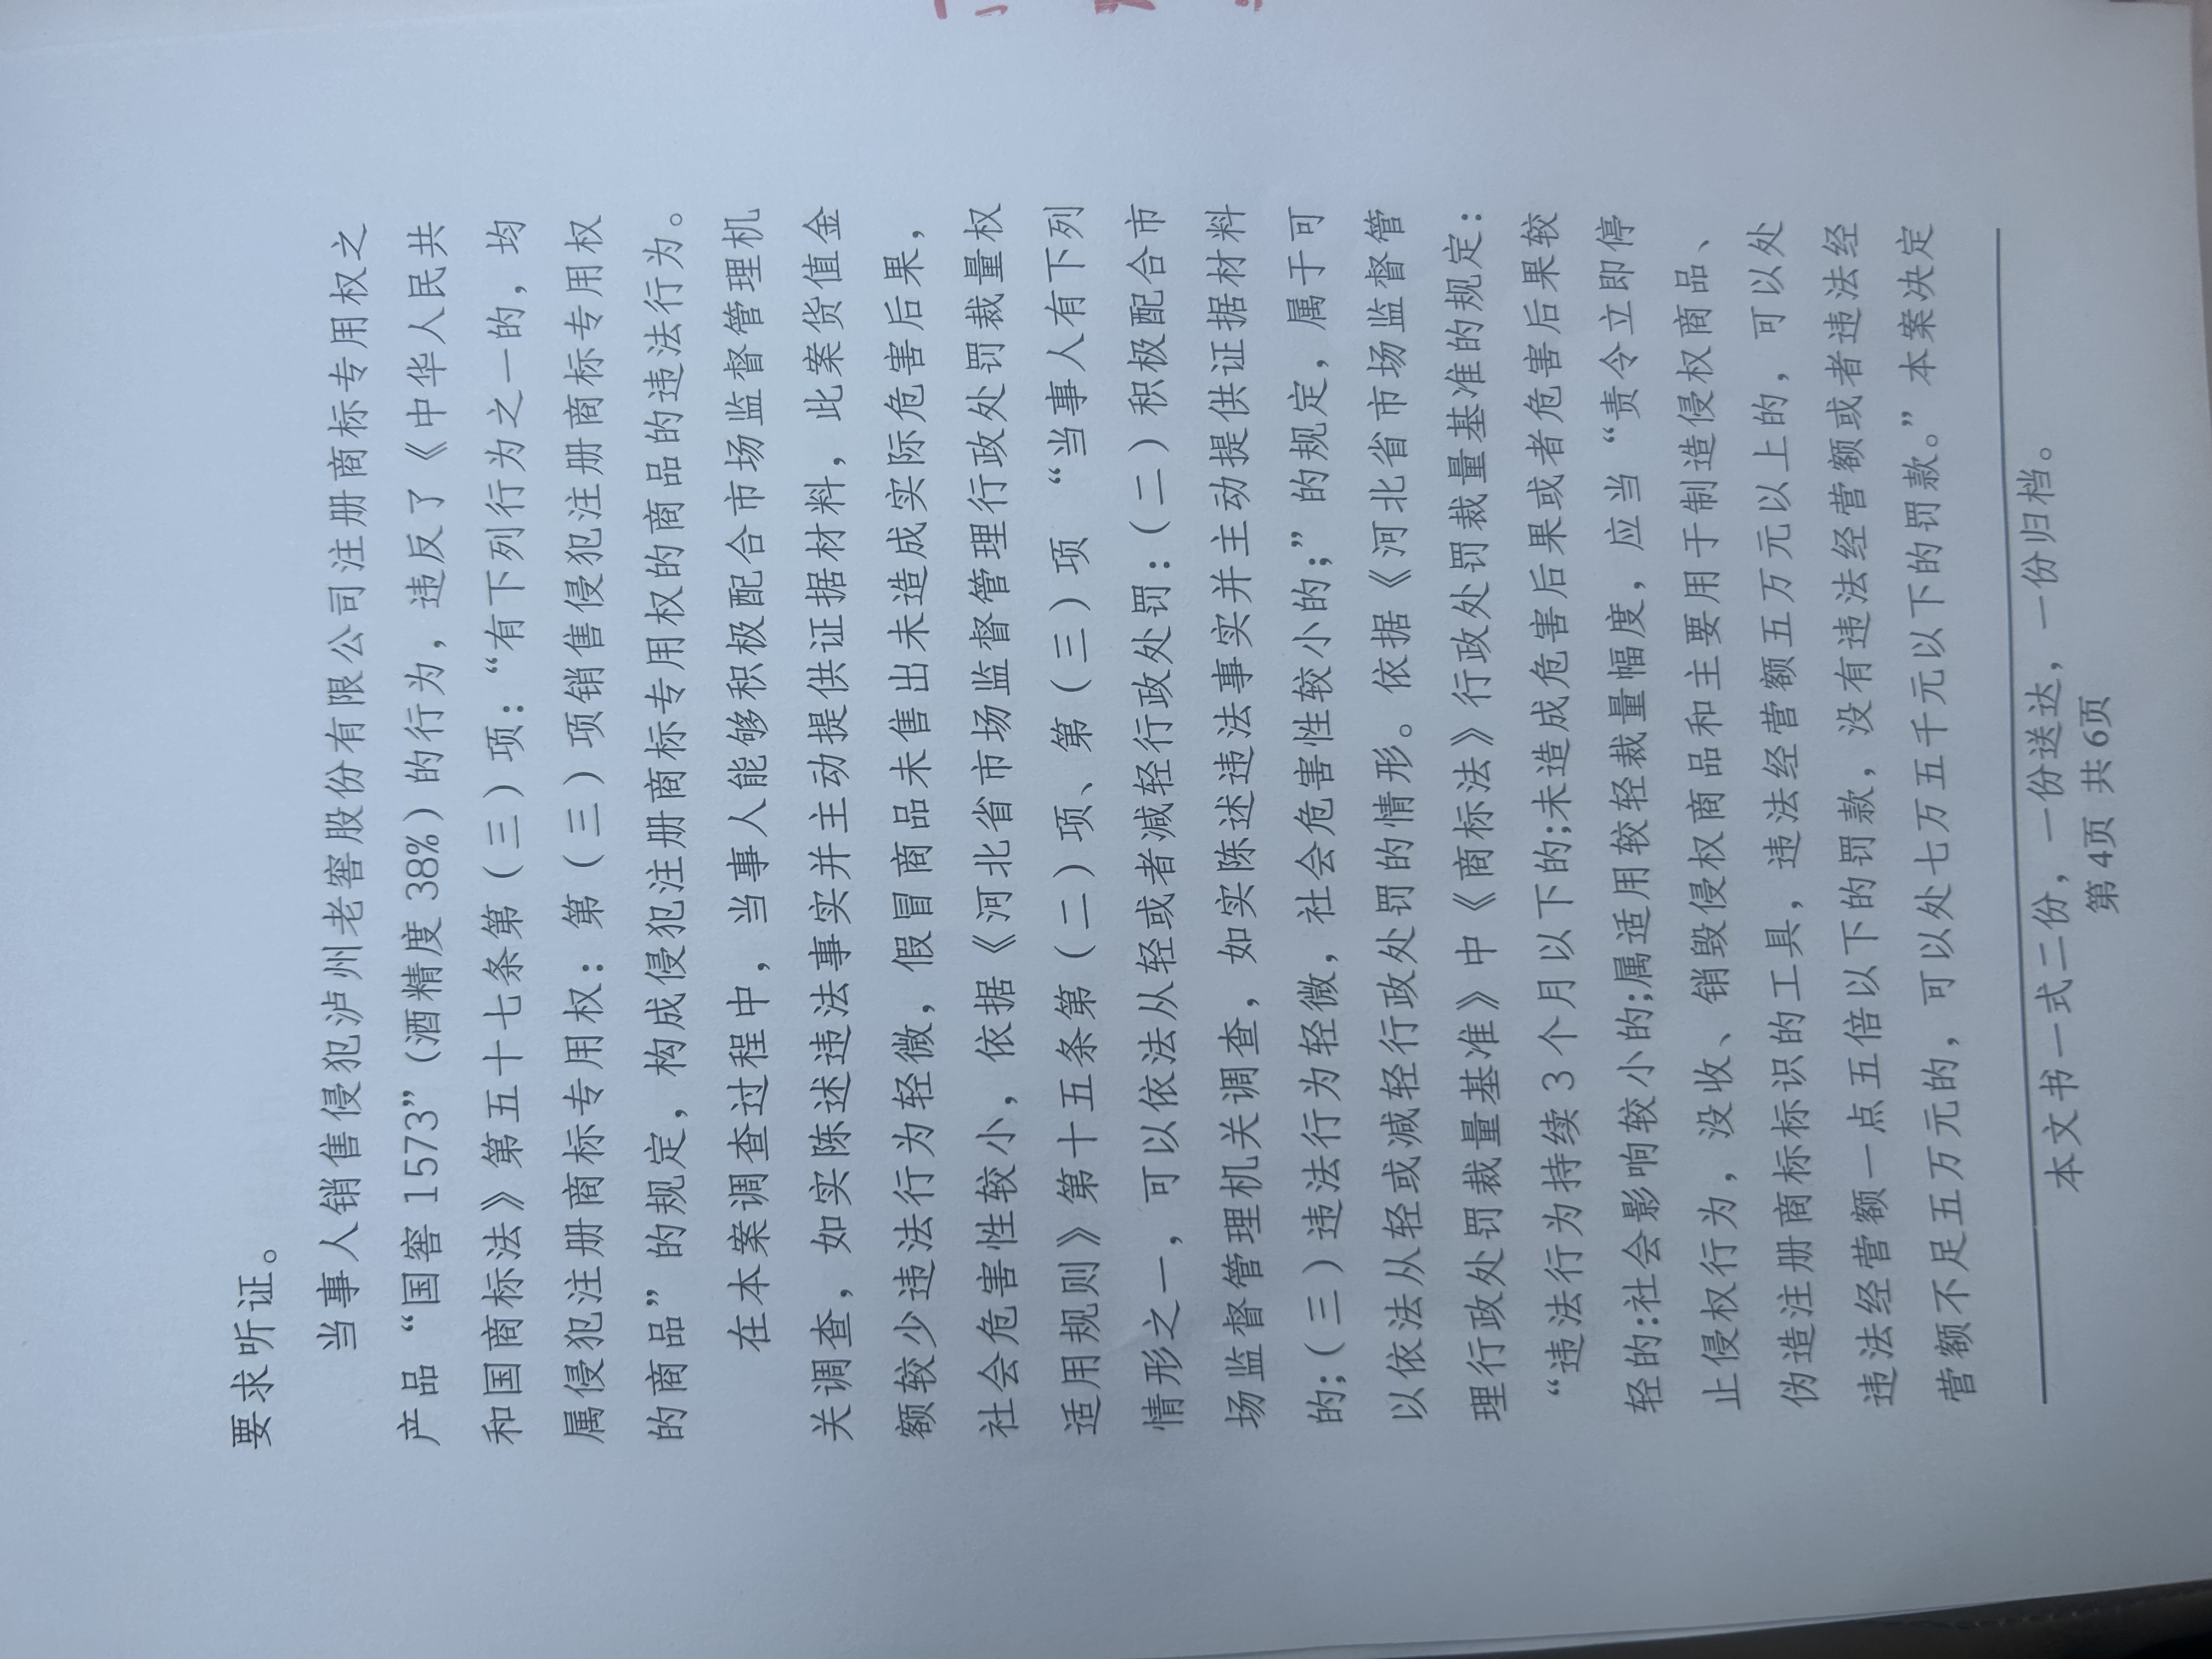 要求听证。
当事人销售侵犯泸州老窖股份有限公司注册商标专用权之
产品“国窖1573”(酒精度38%)的行为，违反了《中华人民共
和国商标法》第五十七条第（三）项：“有下列行为之一的，均
属侵犯注册商标专用权：第（三）项销售侵犯注册商标专用权
的商品”的规定，构成侵犯注册商标专用权的商品的违法行为。
在本案调查过程中，当事人能够积极配合市场监督管理机
关调查，如实陈述违法事实并主动提供证据材料，此案货值金
额较少违法行为轻微，假冒商品未售出未造成实际危害后果，
社会危害性较小，依据《河北省市场监督管理行政处罚裁量权
适用规则》第十五条第（二）项、第（三）项 “当事人有下列
情形之一，可以依法从轻或者减轻行政处罚：（二）积极配合市
场监督管理机关调查，如实陈述违法事实并主动提供证据材料
的；（三）违法行为轻微，社会危害性较小的；”的规定，属于可
以依法从轻或减轻行政处罚的情形。依据《河北省市场监督管
理行政处罚裁量基准》中《商标法》行政处罚裁量基准的规定：
“违法行为持续3个月以下的;未造成危害后果或者危害后果较
轻的:社会影响较小的;属适用较轻裁量幅度，应当“责令立即停
止侵权行为，没收、销毁侵权商品和主要用于制造侵权商品、
伪造注册商标标识的工具，违法经营额五万元以上的，可以处
违法经营额一点五倍以下的罚款，没有违法经营额或者违法经
营额不足五万元的，可以处七万五千元以下的罚款。”本案决定
本文书一式二份，一份送达，一份归档。
第4页 共6页